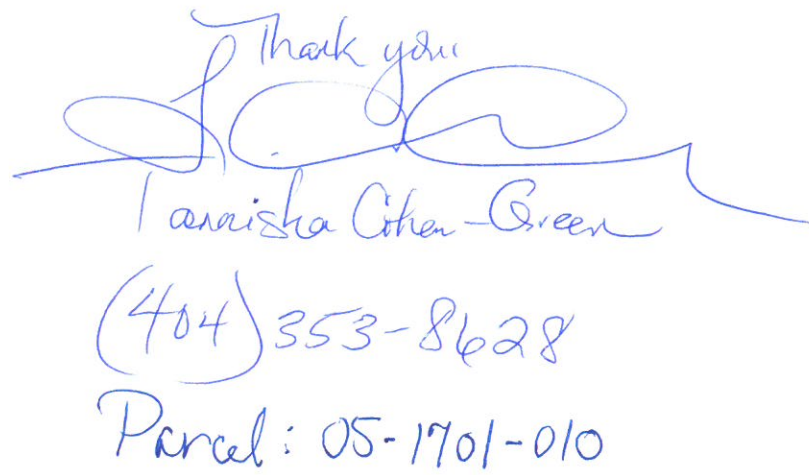 Thank you
Tannisha Cohen-Green
(404) 353-8628
Parcel: 05-1701-010